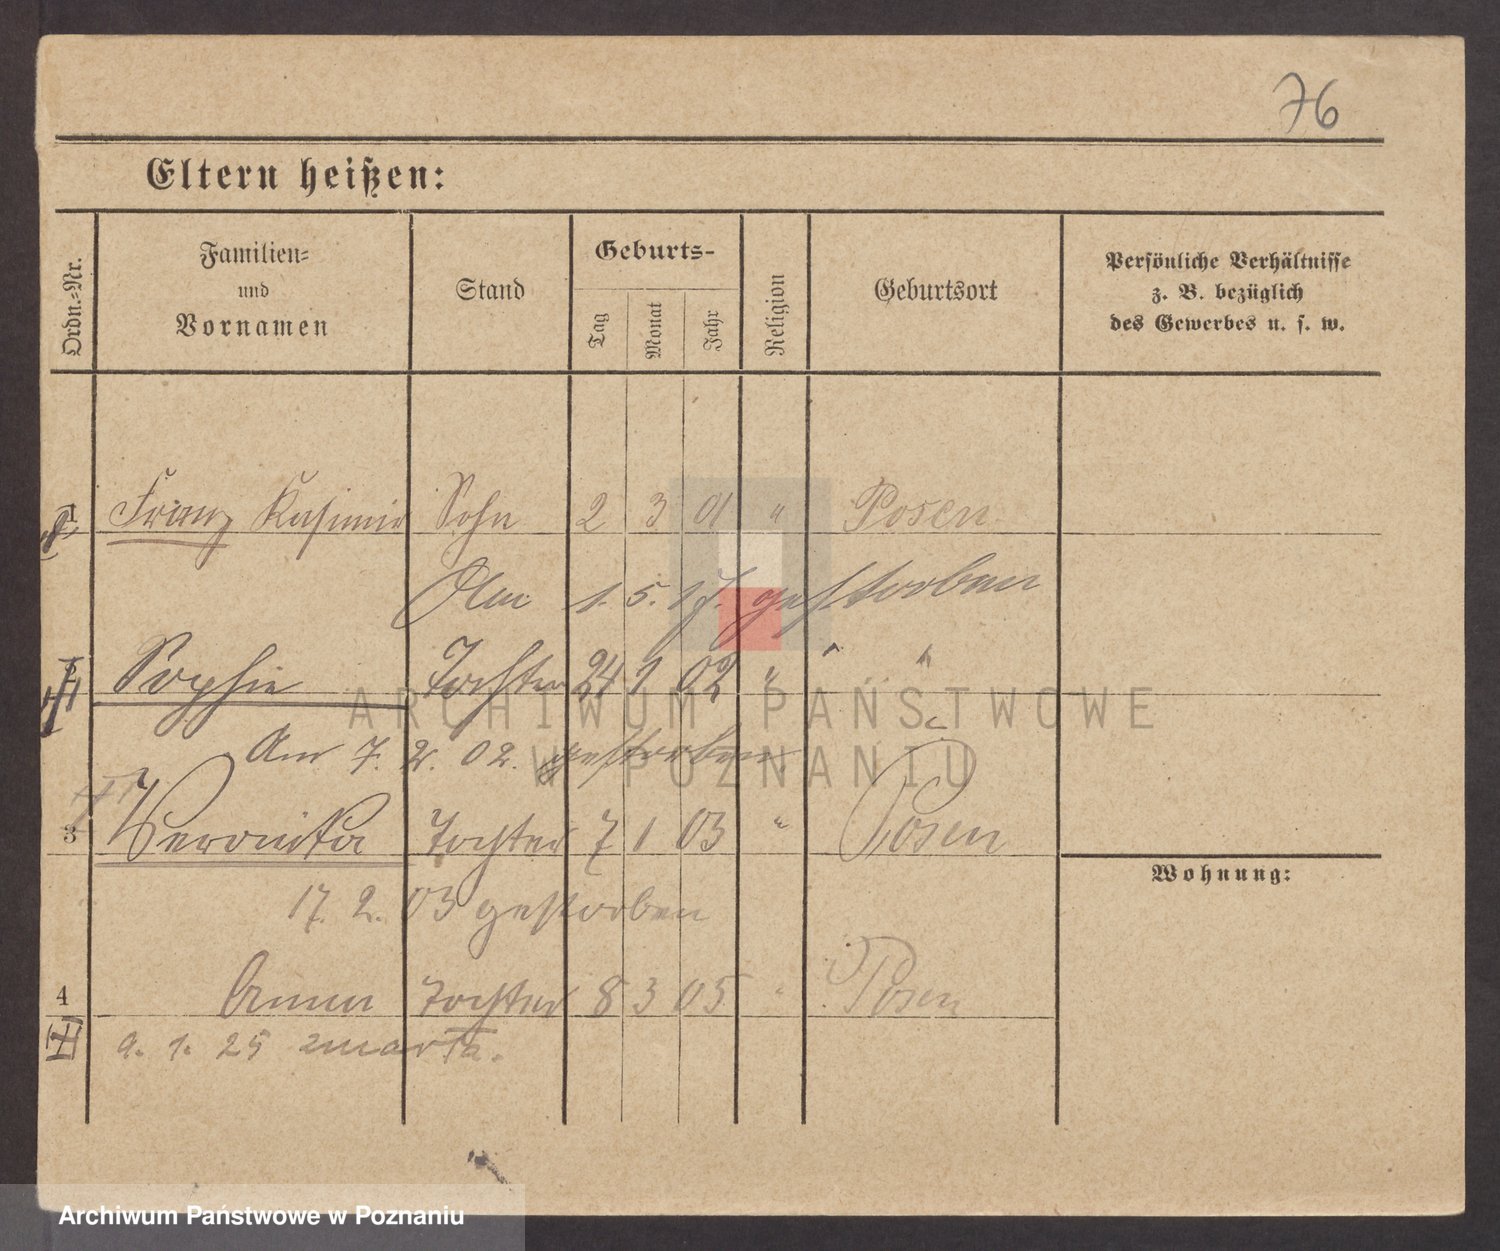 76
Eltern heißen:
Ordn.-Nr.
Familien-
und
Vornamen
Stand
Geburts-
Tag
Monat
Jahr
Religion
Geburtsort
Persönliche Verhältnisse
z. B. bezüglich
des Gewerbes u. s. w.
1 Franz Kasimir Sohn 2 3 01 " Posen
Am 1. 5. 17. gestorben
Sophie Tochter 24 1 02 " " "
Am 7. 2. 02. gestorben
3 Veronika Tochter 7 1 03 " Posen
Wohnung:
17. 2. 03 gestorben
4 Anna Tochter 8 3 05 " Posen
9. 1. 25 zmarła.
ARCHIWUM PAŃSTWOWE
W POZNANIU
Archiwum Państwowe w Poznaniu